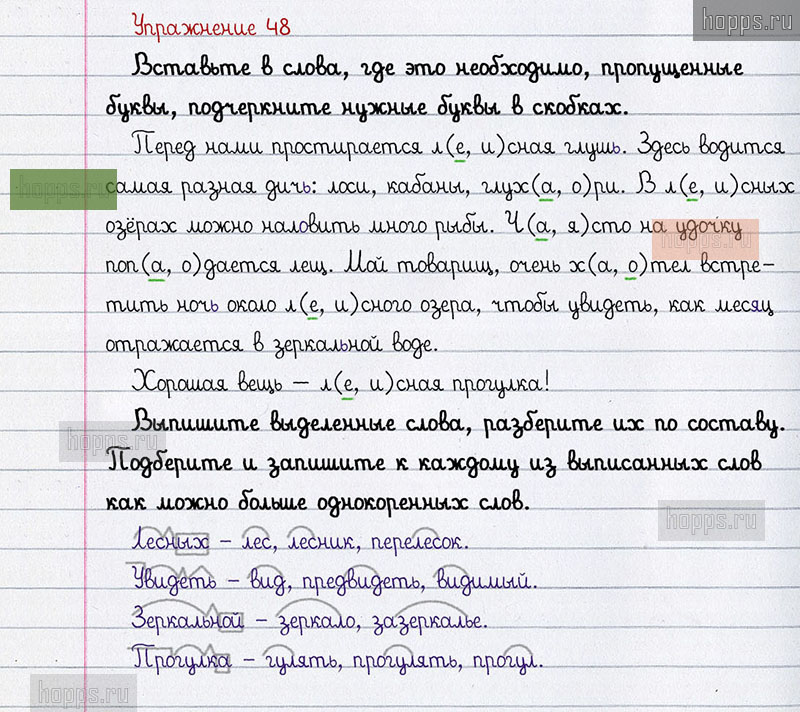 hopps.ru
Упражнение 48
Вставьте в слова, где это необходимо, пропущенные
буквы, подчеркните нужные буквы в скобках.
Перед нами простирается л(е, и)сная глушь. Здесь водится
hopps.ru
самая разная дичь: лоси, кабаны, глух(а, о)ри. В л(е, и)сных
озёрах можно наловить много рыбы. Ч(а, я)сто на удочку
hopps.ru
поп(а, о)дается лещ. Мой товарищ, очень х(а, о)тел встре-
тить ночь около л(е, и)сного озера, чтобы увидеть, как месяц
отражается в зеркальной воде.
Хорошая вещь – л(е, и)сная прогулка!
Выпишите выделенные слова, разберите их по составу.
hopps.ru
Подберите и запишите к каждому из выписанных слов
как можно больше однокоренных слов.
hopps.ru
Лесных – лес, лесник, перелесок.
Увидеть – вид, предвидеть, видимый.
Зеркальной – зеркало, зазеркалье.
Прогулка – гулять, прогулять, прогул.
hopps.ru